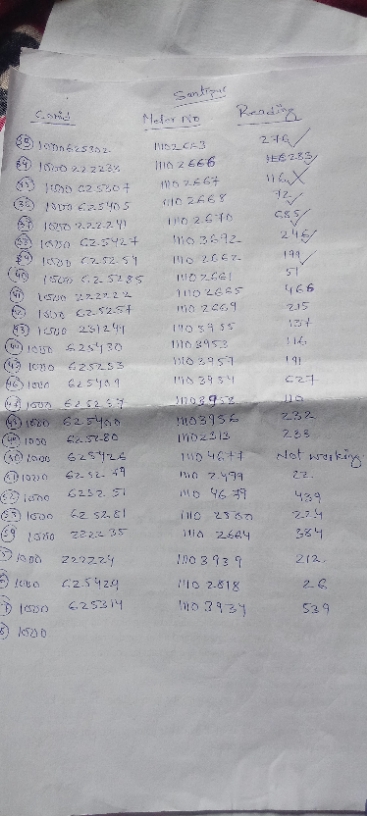 Santipur
C.onid Meter No Reading
1000625302 11102663 276 ✓
1000 222232 11102666 283 ✓
1000 625307 11102667 116 X
1000 625405 11102668 72 ✓
1000 222241 11102670 685 ✓
1000 625427 11103692 246 ✓
1000 625254 11102662 199 ✓
(40) 1000 625285 11102661 51
(41) 1000 222222 11102665 466
1000 625257 11102669 215
1000 231241 137
1000 625430 11103953 116
1000 625253 11103957 191
1000 625409 11103954 627
1000 625257 110
1000 625400 11103956 232
1000 625280 288
1000 625426 1110 4677 Not working
1000 625259 1110 2499 22
1000 625251 1110 4679 439
1000 625281 1110 224
1000 222235 1110 2664 384
1000 222224 1110 3939 212
1000 625429 1110 2818 26
1000 625314 1110 3937 539
1000